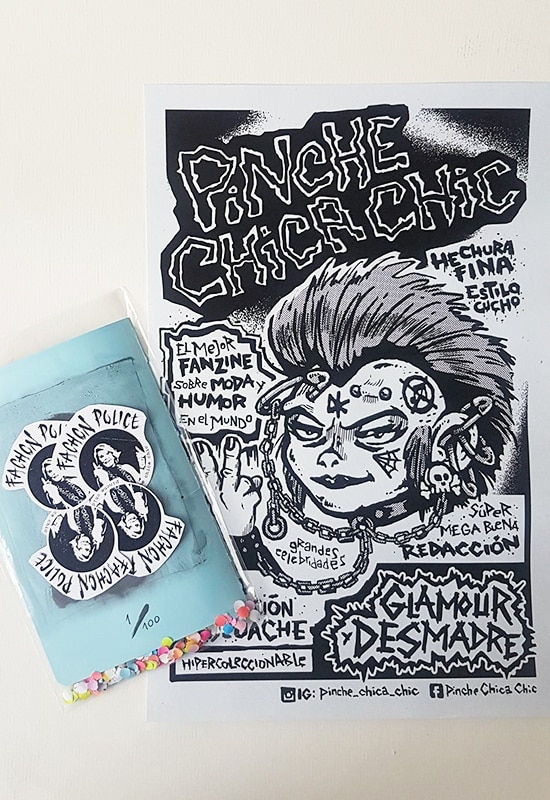 PINCHE
CHICA CHIC
HECHURA
FINA
ESTILO
CUCHO
EL MEJOR
FANZINE
SOBRE MODA Y
HUMOR
EN EL MUNDO
grandes
celebridades
SUPER
MEGA BUENA
REDACCIÓN
GLAMOUR
Y DESMADRE
HIPERCOLECCIONABLE
IG: pinche_chica_chic
Pinche Chica Chic
FACHON
FACHON POLICE
FACHON
FACHON POLICE
1/100